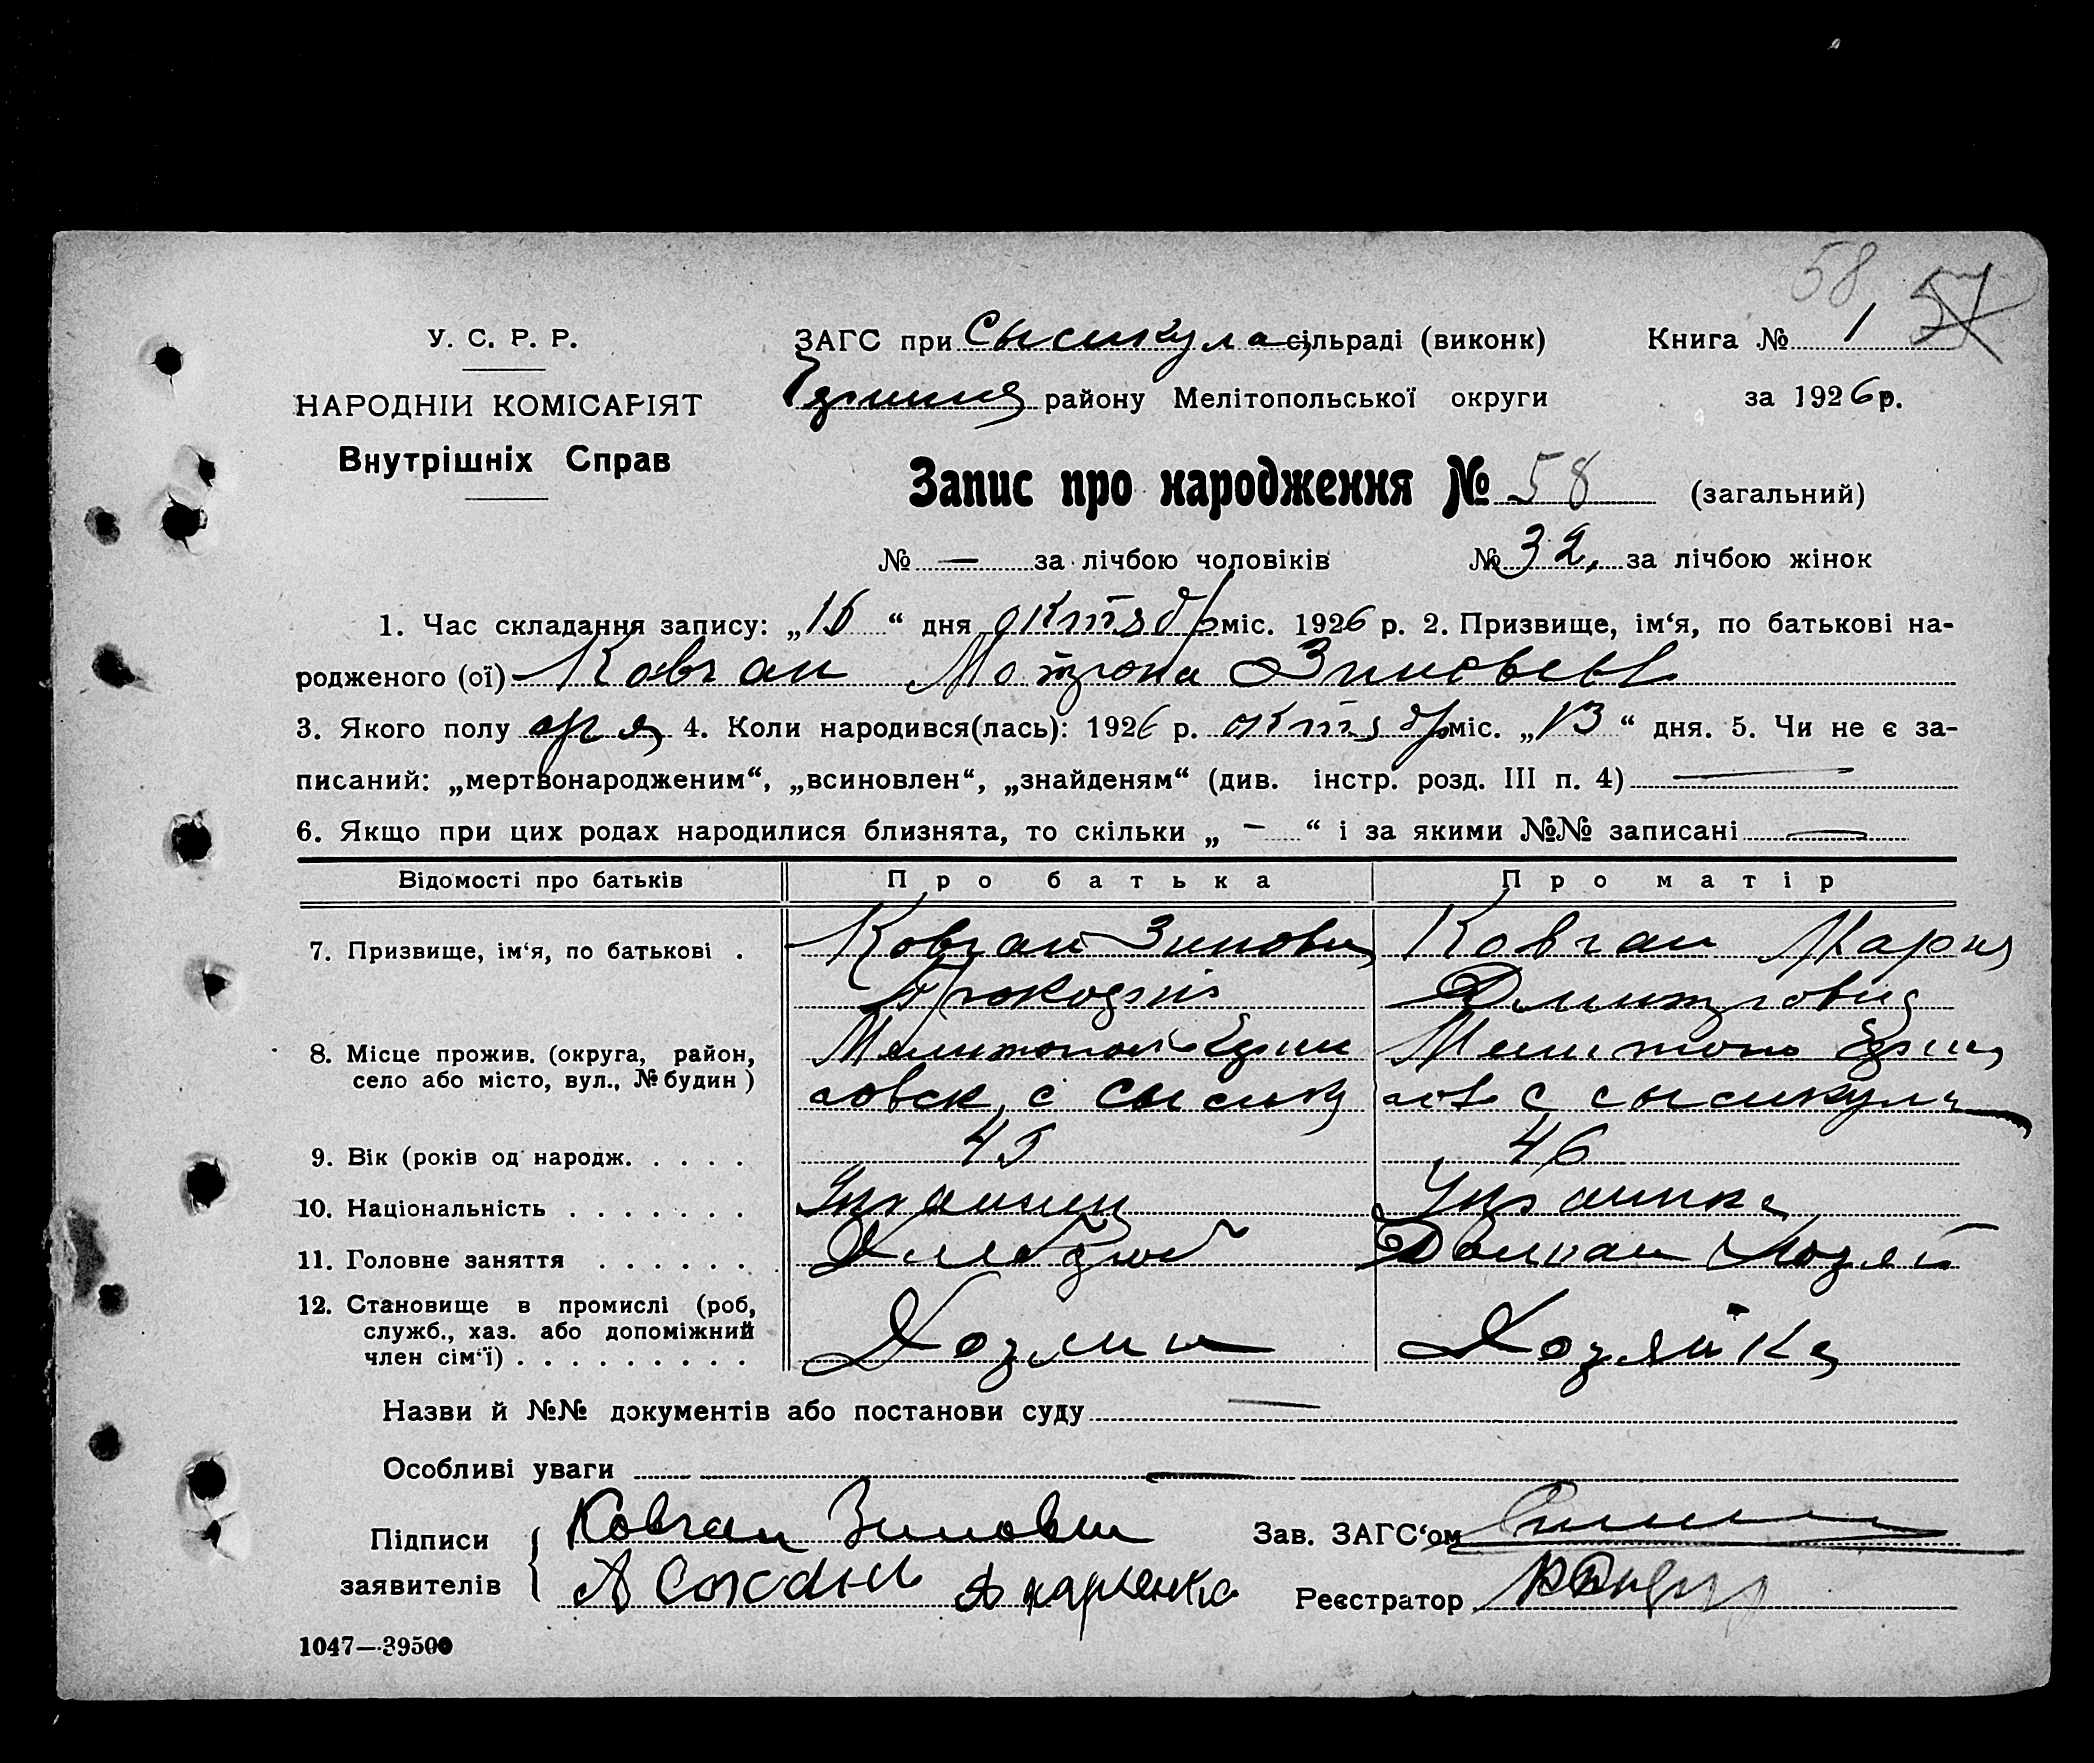 58 57
У. С. Р. Р.
НАРОДНІЙ КОМІСАРІЯТ
Внутрішніх Справ
ЗАГС при Сысикула сільраді (виконк)
району Мелітопольської округи
Книга № 1
за 1926 р.
Запис про народження № 58 (загальний)
№ — за лічбою чоловіків № 32. за лічбою жінок
1. Час складання запису: „ “ дня октябр міс. 1926 р. 2. Призвище, ім‘я, по батькові на-
родженого (ої) Ковган Мотрона Зиновьев
3. Якого полу 4. Коли народився(лась): 1926 р. октябр міс. „13“ дня. 5. Чи не є за-
писаний: „мертвонародженим“, „всиновлен“, „знайденям“ (див. інстр. розд. III п. 4) —
6. Якщо при цих родах народилися близнята, то скільки „ — “ і за якими №№ записані —
Відомості про батьків Про батька Про матір
7. Призвище, ім‘я, по батькові . Ковган Зинови Ковган Мария
Дмитровна
8. Місце прожив. (округа, район,
село або місто, вул., № будин) с Сысику с сысикула
9. Вік (років од народж. . . . . 45 46
10. Національність . . . . . . . Украинец Украинка
11. Головне заняття . . . . . . . Хлебороб Домаш Хозяй
12. Становище в промислі (роб,
служб., хаз. або допоміжний
член сім‘ї) . . . . . . . . . Хозяин Хозяйка
Назви й №№ документів або постанови суду —
Особливі уваги —
Підписи
заявителів
Ковган Зиновии
Зав. ЗАГС‘ом
Харченко
Реєстратор
1047—39500